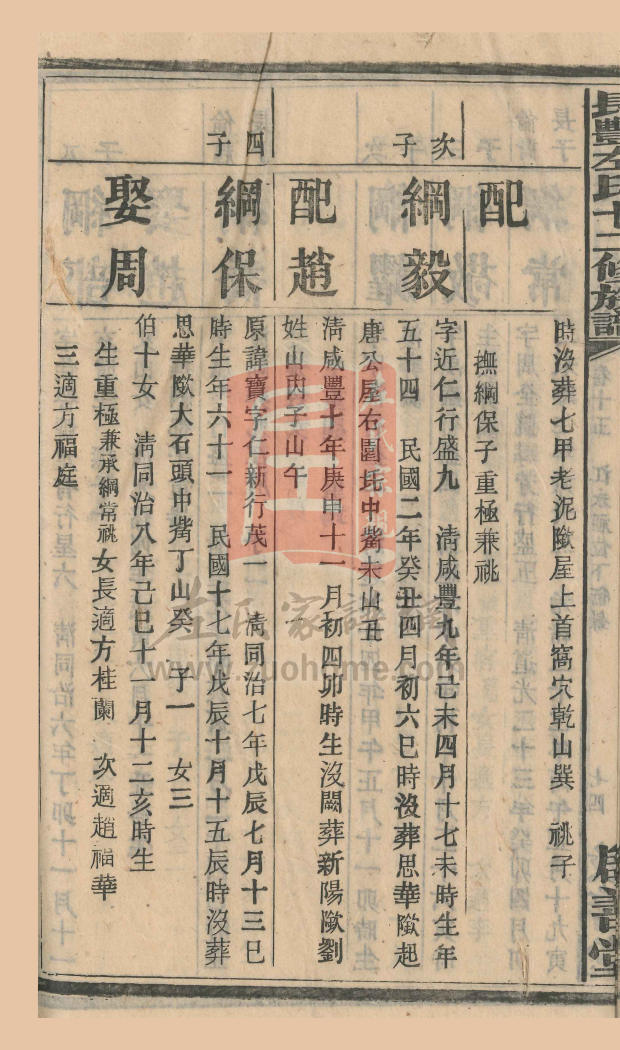 長豐左氏十二修族譜
卷十五
七四
啟善堂
時沒葬七甲老泥歐屋上首窩穴乾山巽 祧子
配
撫綱保子重極兼祧
次子
綱毅
字近仁行盛九 清咸豐九年己未四月十七未時生年
五十四 民國二年癸丑四月初六巳時沒葬思華歐起
唐公屋右園坵中嘴未山丑
配趙
清咸豐十年庚申十一月初四卯時生沒闕葬新陽歐劉
姓山丙子山午
四子
綱保
原諱寶字仁新行茂一 清同治七年戊辰七月十三巳
時生年六十一 民國十七年戊辰十月十五辰時沒葬
思華歐大石頭中嘴丁山癸 子一 女三
娶周
伯十女 清同治八年己巳十一月十二亥時生
生重極兼承綱常祧女長適方桂蘭 次適趙福華
三適方福庭
左氏家譜
www.zuohome.com